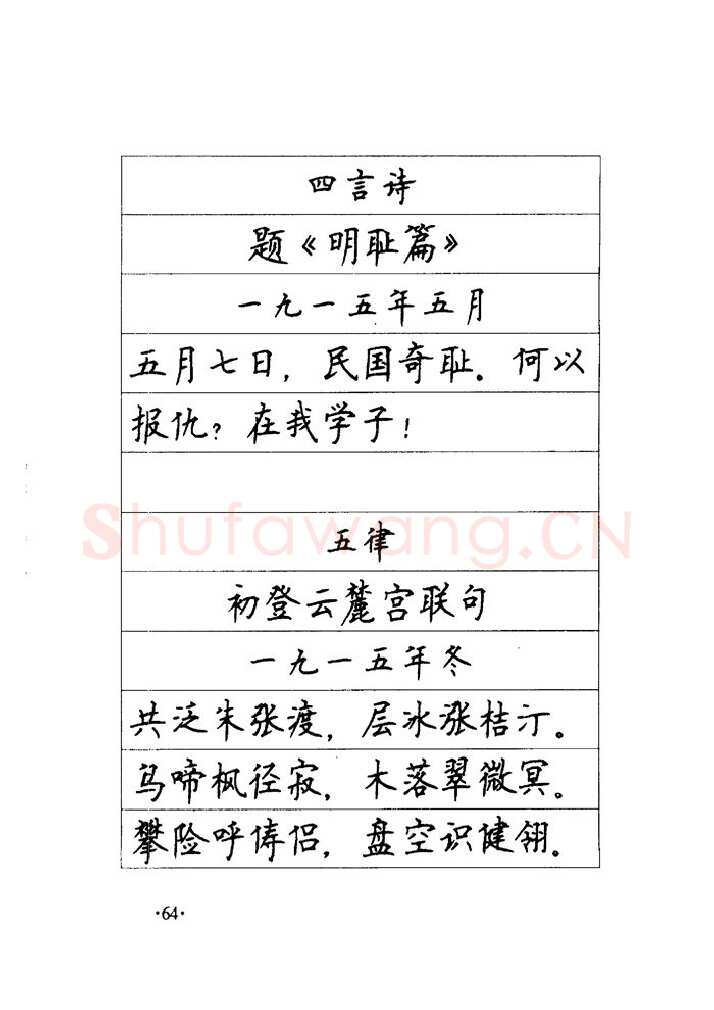 四言诗
题《明耻篇》
一九一五年五月
五月七日，民国奇耻。何以
报仇？在我学子！
Shufawang.CN
五律
初登云麓宫联句
一九一五年冬
共泛朱张渡，层冰涨桔汀。
鸟啼枫径寂，木落翠微冥。
攀险呼俦侣，盘空识健翎。
·64·